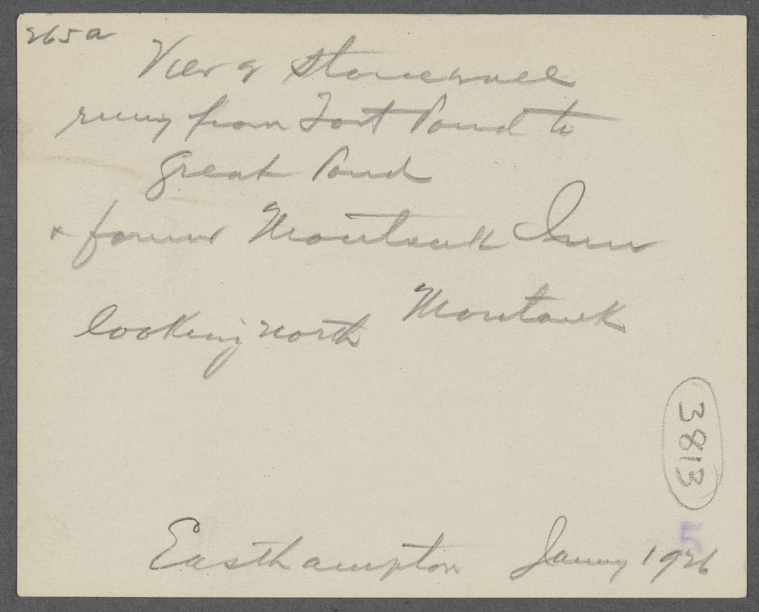 265a
View of Stonewall
runing from Fort Pond to
Great Pond
+ former Montauk Inn
looking north Montauk
3813
5
Easthampton Janury 1926